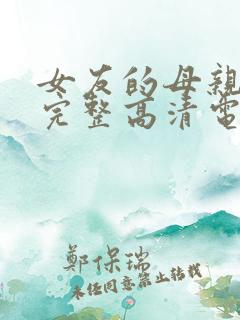 女友的母親
完整高清電
鄭保瑞
未经同意禁止转载